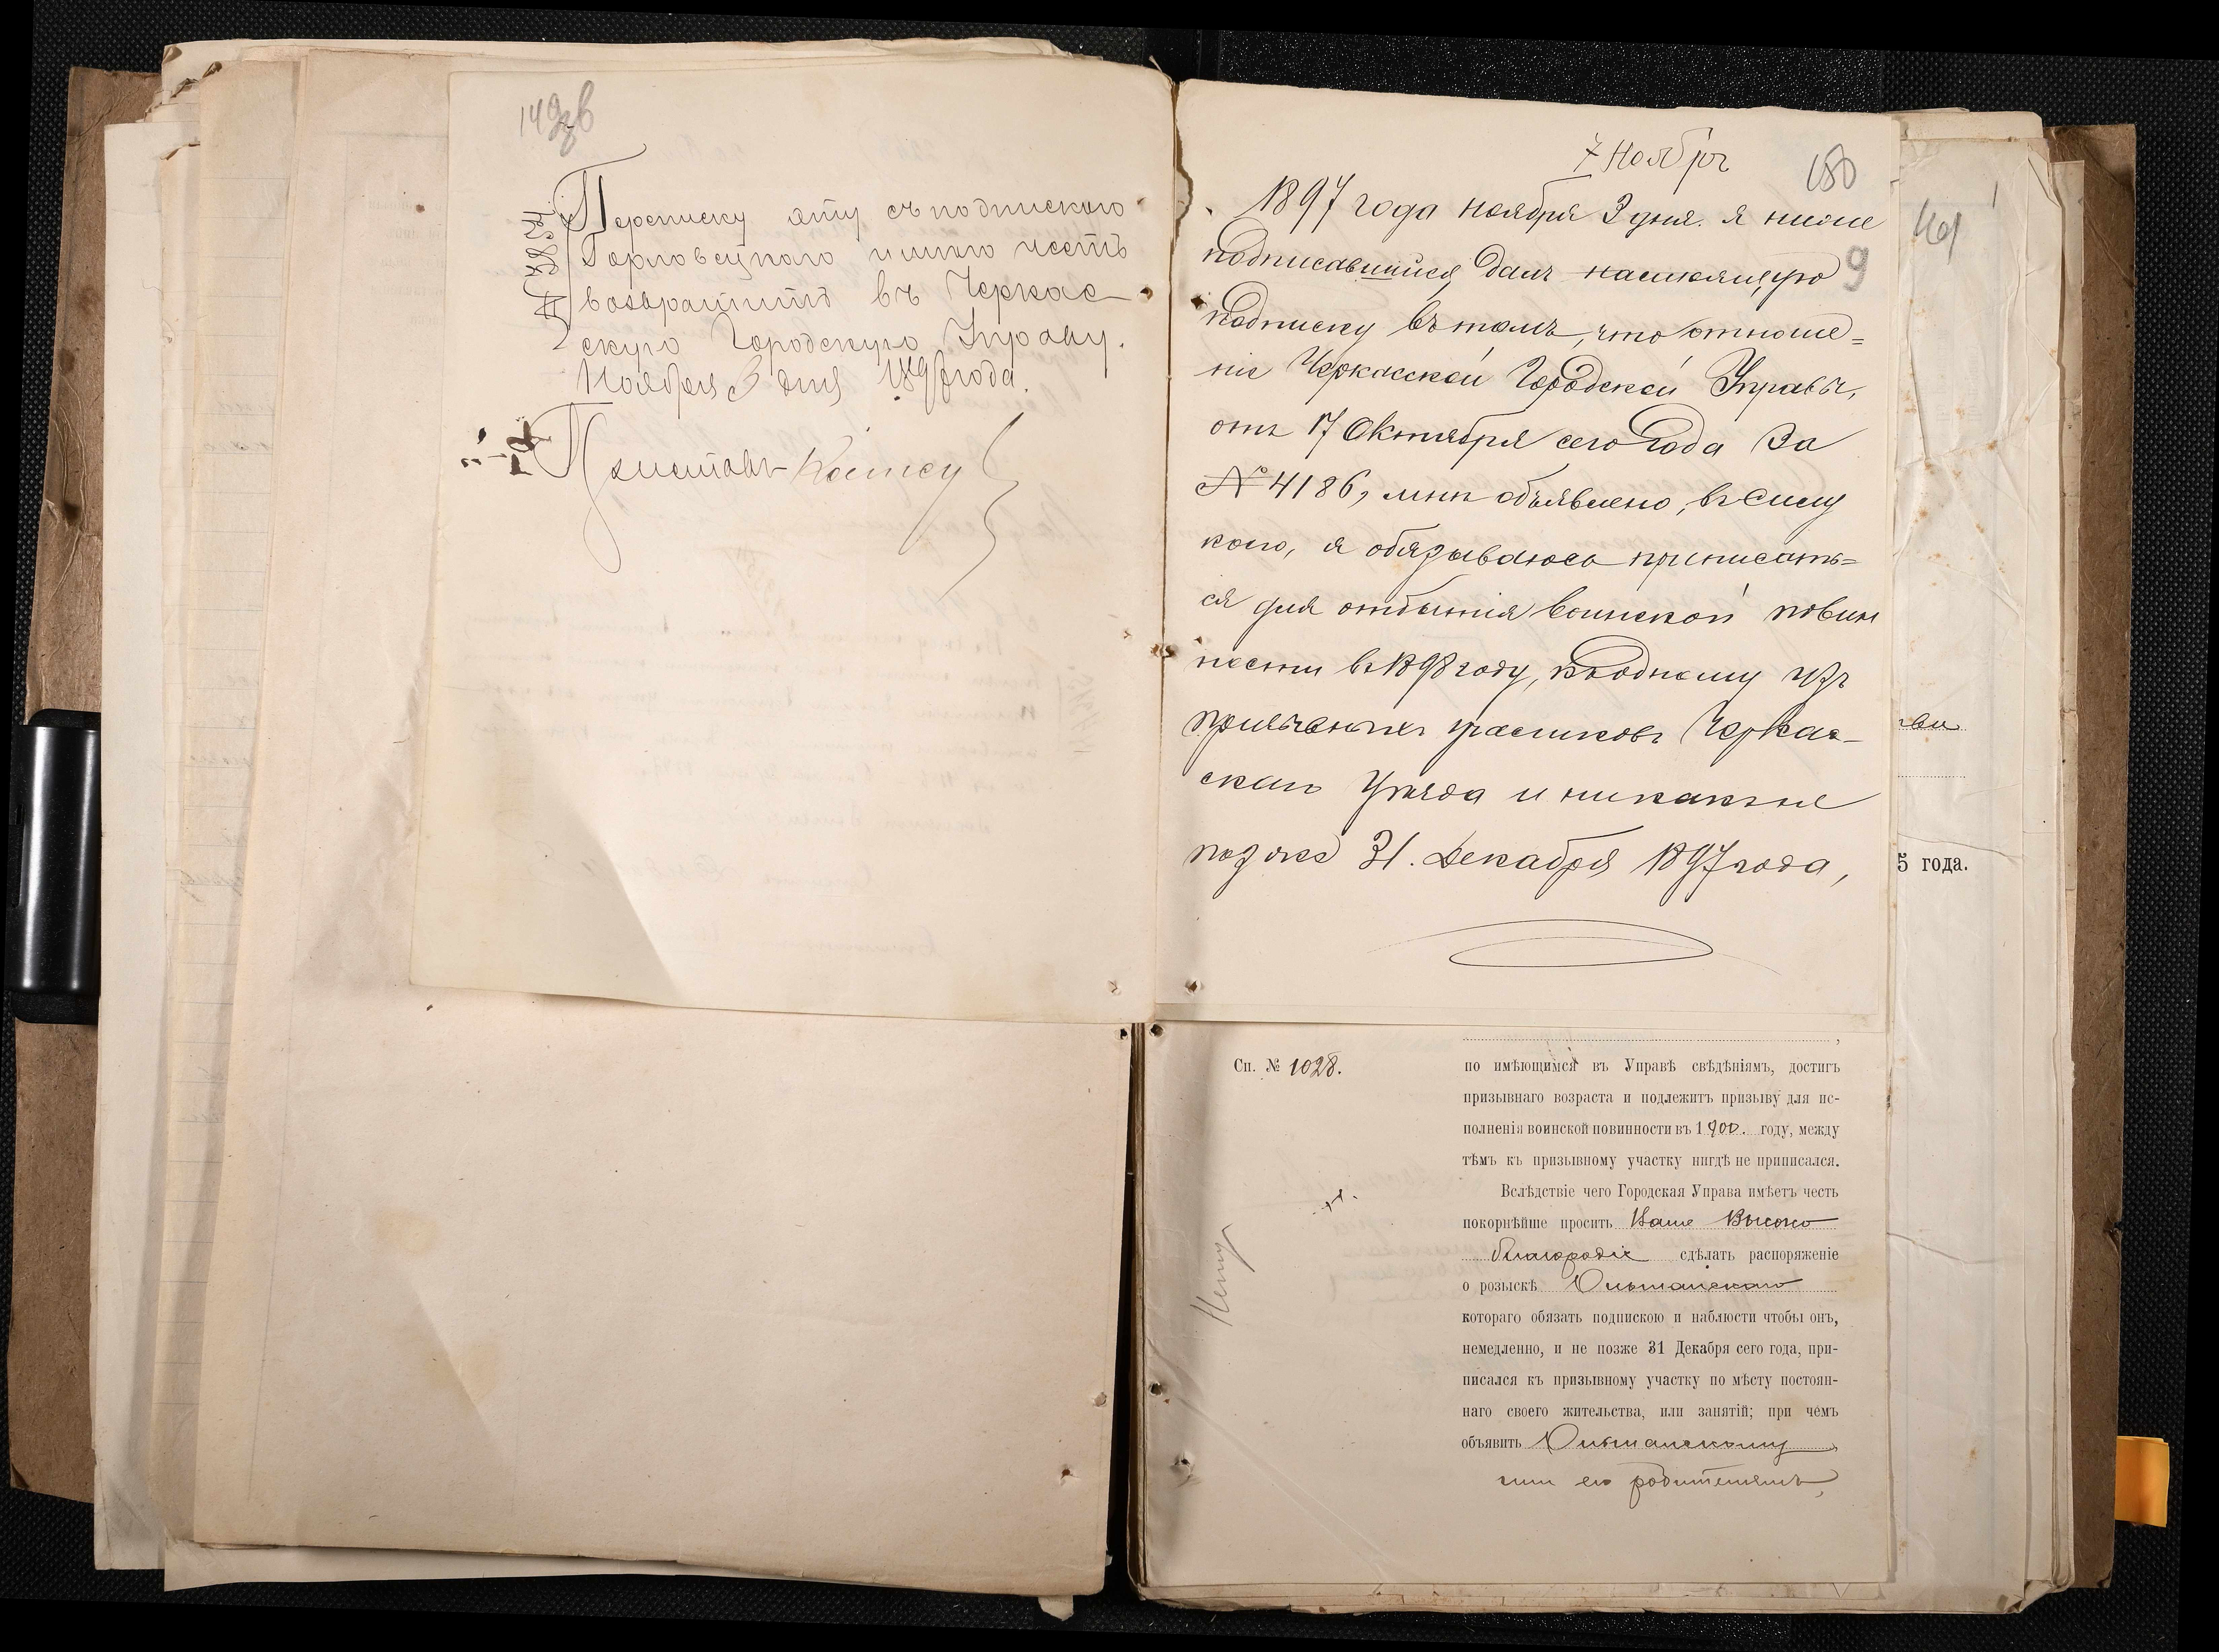 149 зв
№ 3854
Переписку эту съ подпискою
Горловецкаго имѣю честь
возвратить въ Черкас-
скую Городскую Управу.
Ноября 3 дня 1897 года.
Приставъ
7 Ноябрь
150
1897 года ноября 3 дня. Я ниже
подписавшийся, далъ настоящую
9
подписку въ томъ, что отноше=
ніе Черкасской Городской Управы,
отъ 17 Октября сего года за
№ 4186, мнѣ объявлено, въ силу
кого, я обязываюсь приписать=
ся для отбытія воинской повин
ности въ 1898 году, къ одному изъ
призывныхъ участковъ Черкас-
скаго уѣзда и никакъ не
позже 31. Декабря 1897 года,
Сп. № 1028.
по имѣющимся въ Управѣ свѣдѣніямъ, достигъ
призывнаго возраста и подлежитъ призыву для ис-
полненія воинской повинности въ 1900. году, между
тѣмъ къ призывному участку нигдѣ не приписался.
Вслѣдствіе чего Городская Управа имѣетъ честь
покорнѣйше просить Ваше Высоко
благородіе сдѣлать распоряженіе
о розыскѣ Ольшанскаго
котораго обязать подпискою и наблюсти чтобы онъ,
немедленно, и не позже 31 Декабря сего года, при-
писался къ призывному участку по мѣсту постоян-
наго своего жительства, или занятій; при чемъ
объявить Ольшанскому,
или его родителямъ,
5 года.